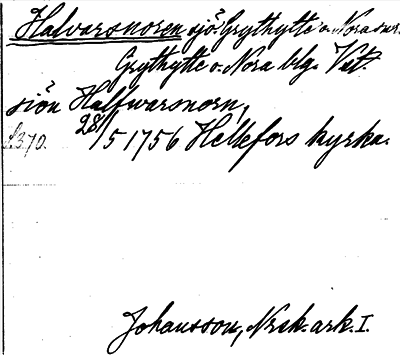 Halvarsnoren sjö. Grythytte o. Nora snr.
Grythytte o. Nora blg. Vstl.
sjön Halfwarsnorn,
£370. 28/5 1756 Hellefors kyrka.
Johansson, Nrak. ark. I.